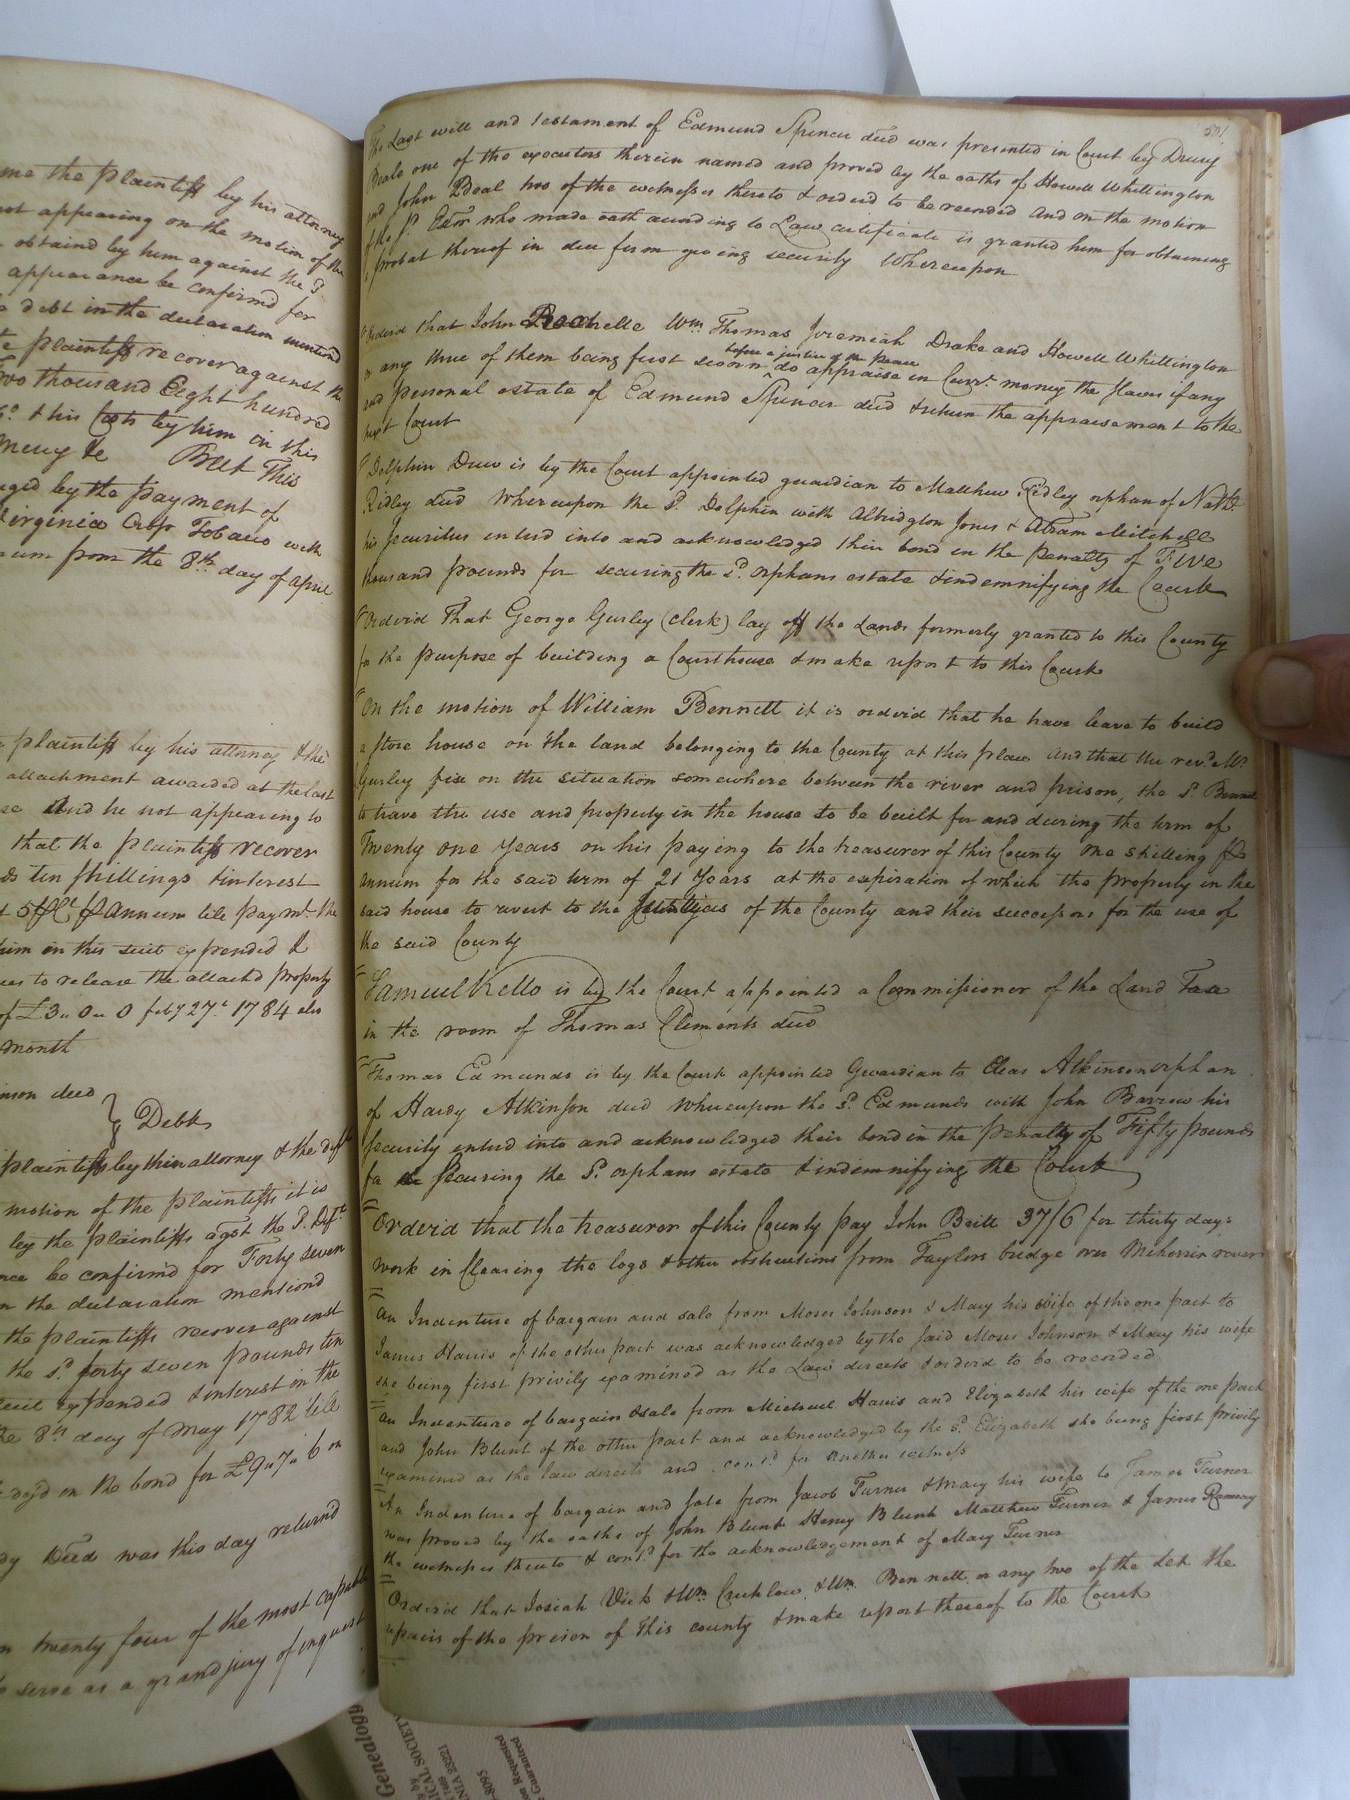 me the plaintiff by his attorney
not appearing on the motion of the
obtaind by him against the sd
appearance be confirmd for
debt in the declaration mentiond
plaintiff recover against the
Two thousand Eight hundred
& his Costs by him in this
mercy &c But This
by the payment of
Virginia Crop Tobacco with
from the 8th day of april
plaintiff by his attorney & the
attachment awarded at the last
and he not appearing to
that the plaintiff recover
ten shillings & interest
Annum till paymt the
him in this suit expended &
to release the attachd property
of £3 " 0 " 0 feby 27th 1784 also
month
decd
Debt
plaintiffs by their attorney & the deft
motion of the plaintiffs it is
by the plaintiffs agst the sd Deft
be confirmd for Forty seven
in the declaration mentiond
the plaintiffs recover against
the sd forty seven pounds ten
suit expended & interest on the
the 8th day of may 1782 till
on the bond for £9 " 7 " 6 on
was this day returnd
twenty four of the most capable
serve as a grand jury of inquest
501
The Last will and testament of Edmund Spencer decd was presented in Court by Drury
Beale one of the executors therein named and proved by the oaths of Howell Whittington
and John Beal two of the witnesses thereto & orderd to be recorded and on the motion
of the sd Exor who made oath according to Law certificate is granted him for obtaining
a probat thereof in due form giving security Whereupon
Orderd that John Rochelle Wm Thomas Jeremiah Drake and Howell Whittington
or any three of them being first sworn before a justice of the Peace do appraise in Currt money the slaves if any
and personal estate of Edmund Spencer decd & return the appraisement to the
next Court
Dolphin Drew is by the Court appointed guardian to Matthew Ridley orphan of Nathl
Ridley decd Whereupon the sd Dolphin with Albridgton Jones & Abram Mitchell
his Securities enterd into and acknowledged their bond in the Penalty of Five
thousand pounds for securing the sd orphans estate & indemnifying the Court
Orderd That George Gurley (Clerk) lay off the Lands formerly granted to this County
for the purpose of building a Courthouse & make report to this Court
On the motion of William Bennett it is orderd that he have leave to build
a store house on the land belonging to the County at this place and that the revd Mr
Gurley fix on the situation somewhere between the river and prison, the sd Bennett
to have the use and property in the house to be built for and during the term of
Twenty one Years on his paying to the treasurer of this County one shilling per
annum for the said term of 21 Years at the expiration of which the property in the
said house to revert to the Justices of the County and their successors for the use of
the said County
Samuel Kello is by the Court appointed a Commissioner of the Land Tax
in the room of Thomas Clements decd
Thomas Edmunds is by the Court appointed Guardian to Elias Atkinson orphan
of Hardy Atkinson decd Whereupon the sd Edmunds with John Barrow his
Security enterd into and acknowledged their bond in the penalty of Fifty pounds
for securing the sd orphans estate & indemnifying the Court
Orderd that the treasurer of this County pay John Britt 37/6 for thirty days
work in Clearing the logs & other obstructions from Taylors bridge over Meherrin river
An Indenture of bargain and sale from Moses Johnson & Mary his wife of the one part to
James Harris of the other part was acknowledged by the said Moses Johnson & Mary his wife
she being first privily examined as the Law directs & orderd to be recorded
An Indenture of bargain & sale from Michael Harris and Elizabeth his wife of the one part
and John Blunt of the other part and acknowledged by the sd Elizabeth she being first privily
examined as the law directs and contd for another witness
An Indenture of bargain and sale from Jacob Turner & Mary his wife to James Turner
was proved by the oaths of John Blunt Henry Blunt Matthew Turner & James Ramsay
the witnesses thereto & contd for the acknowledgement of Mary Turner
Orderd that Josiah Vick & Wm Crichlow & Wm Bennett or any two of them let the
repairs of the prison of this county & make report thereof to the Court
Genealogy